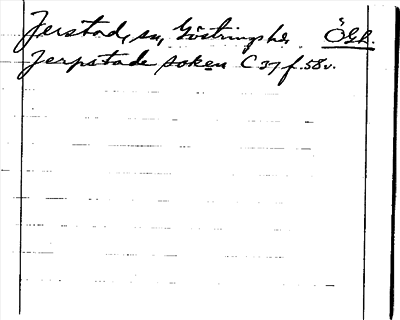 Jerstad, sn, Göstringshd. ÖGL.
Jerpstade soken C 37 f. 58v.